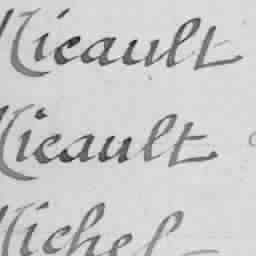 Nicault
Nicault
Michel